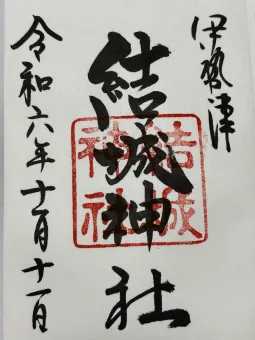 伊勢津
結城神社
結城
神社
令和六年十一月十一日